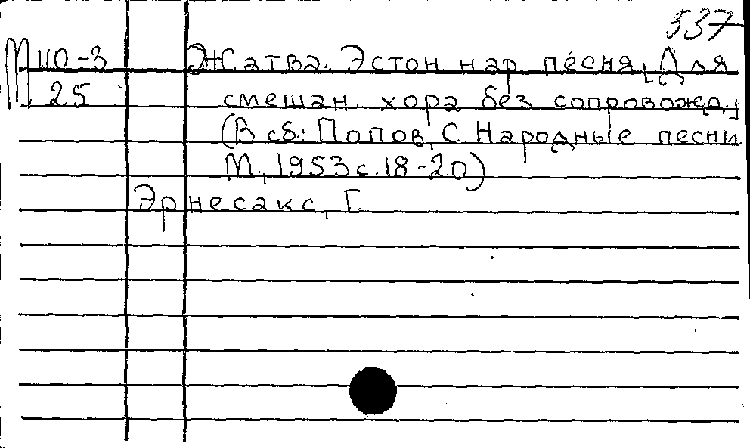 537
М 110-3 Жатва. Эстон нар песня, Для
25 смешан хора без сопровожд.,
(В сб: Попов, С. Народные песни
М, 1953 с. 18-20)
Эрнесакс, Г.